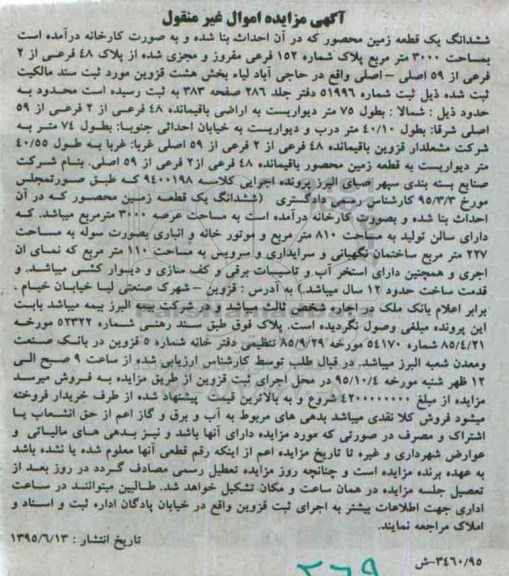 آگهی مزایده اموال غیر منقول
ششدانگ یک قطعه زمین محصور که در آن احداث بنا شده و به صورت کارخانه درآمده است
بمساحت ۳۰۰۰ متر مربع پلاک شماره ۱۵۲ فرعی مفروز و مجزی شده از پلاک ۴۸ فرعی از ۲
فرعی از ۵۹ اصلی – اصلی واقع در حاجی آباد لیاء بخش هشت قزوین مورد ثبت سند مالکیت
ثبت شده ذیل ثبت شماره ۵۱۹۹۶ دفتر جلد ۲۸۶ صفحه ۳۸۳ به ثبت رسیده است محدود به
حدود ذیل : شمالا : بطول ۷۵ متر دیواریست به اراضی باقیمانده ۴۸ فرعی از ۲ فرعی از ۵۹
اصلی شرقا: بطول ۴۰/۱۰ متر درب و دیواریست به خیابان احداثی جنوبا: بطول ۷۴ متر به
شرکت مشعلدار قزوین باقیمانده ۴۸ فرعی از ۲ فرعی از ۵۹ اصلی غربا: غربا به طول ۴۰/۵۵
متر دیواریست به قطعه زمین محصور باقیمانده ۴۸ فرعی از۲ فرعی از ۵۹ اصلی. بنام شرکت
صنایع بسته بندی سپهر صبای البرز پرونده اجرایی کلاسه ۹۴۰۰۱۹۸ که طبق صورتمجلس
مورخ ۹۵/۳/۳ کارشناس رسمی دادگستری (ششدانگ یک قطعه زمین محصور که در آن
احداث بنا شده و بصورت کارخانه درآمده است به مساحت عرصه ۳۰۰۰ مترمربع میباشد. که
دارای سالن تولید به مساحت ۸۱۰ متر مربع و موتور خانه و انباری بصورت سوله به مساحت
۲۳۷ متر مربع ساختمان نگهبانی و سرایداری و سرویس به مساحت ۱۱۰ متر مربع که نمای ان
اجری و همچنین دارای استخر آب و تاسیسات برقی و کف سازی و دیوار کشی میباشد. و
قدمت ساخت حدود ۱۲ سال میباشد.) به آدرس : قزوین – شهرک صنعتی لیا خیابان خیام .
برابر اعلام بانک ملک در اجاره شخص ثالث میباشد و در شرکت بیمه البرز بیمه میباشد بابت
این پرونده مبلغی وصول نگردیده است. پلاک فوق طبق سند رهنی شماره ۵۲۳۲۲ مورخه
۸۵/۴/۲۱ شماره ۵۴۱۷۰ مورخه ۸۵/۹/۲۹ تنظیمی دفتر خانه شماره ۵ قزوین در بانک صنعت
ومعدن شعبه البرز میباشد. در قبال طلب توسط کارشناس ارزیابی شده از ساعت ۹ صبح الی
۱۲ ظهر شنبه مورخه ۹۵/۱۰/۴ در محل اجرای ثبت قزوین از طریق مزایده به فروش میرسد
مزایده از مبلغ ۴۲۰۰۰۰۰۰۰۰ شروع و به بالاترین قیمت پیشنهاد شده از طرف خریدار فروخته
میشود فروش کلا نقدی میباشد بدهی های مربوط به آب و برق و گاز اعم از حق انشعاب یا
اشتراک و مصرف در صورتی که مورد مزایده دارای آنها باشد و نیز بدهی های مالیاتی و
عوارض شهرداری و غیره تا تاریخ مزایده اعم از اینکه رقم قطعی آنها معلوم شده یا نشده باشد
به عهده برنده مزایده است و چنانچه روز مزایده تعطیل رسمی مصادف گردد در روز بعد از
تعصیل جلسه مزایده در همان ساعت و مکان تشکیل خواهد شد. طالبین میتوانند در ساعت
اداری جهت اطلاعات بیشتر به اجرای ثبت قزوین واقع در خیابان پادگان اداره ثبت و اسناد و
املاک مراجعه نمایند.
تاریخ انتشار : ۱۳۹۵/۶/۱۳
۳۴۶۰/۹۵-ش
۲۶۹